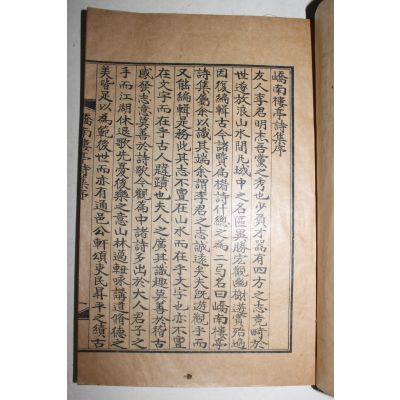 嶠南樓亭詩集序
友人李君明杰吾黨之秀也少負才器有四方之志竟畸於
世遂放浪山水間凡域中之名區與勝宏觀幽榭遊賞殆遍
因復編輯古今諸賢扁楣詩什總之為二局名曰嶠南樓亭
詩集屬余以識其端余謂李君之志誠遠矣夫旣遊觀乎而
又能編輯是務此其志不亶在山水而在乎文字也亦不亶
在文字而在乎古人蹟也夫人之廣其識趣莫善於稽古
感發志意莫善於詩歌今觀篇中諸詩多出於大人君子之
手而江湖休退歌先憂後樂之意山林邁軸咏講道脩德之
美皆足以為範後世而亦有通邑公軒頌吏民昇平之績古
嶠南樓亭詩集序